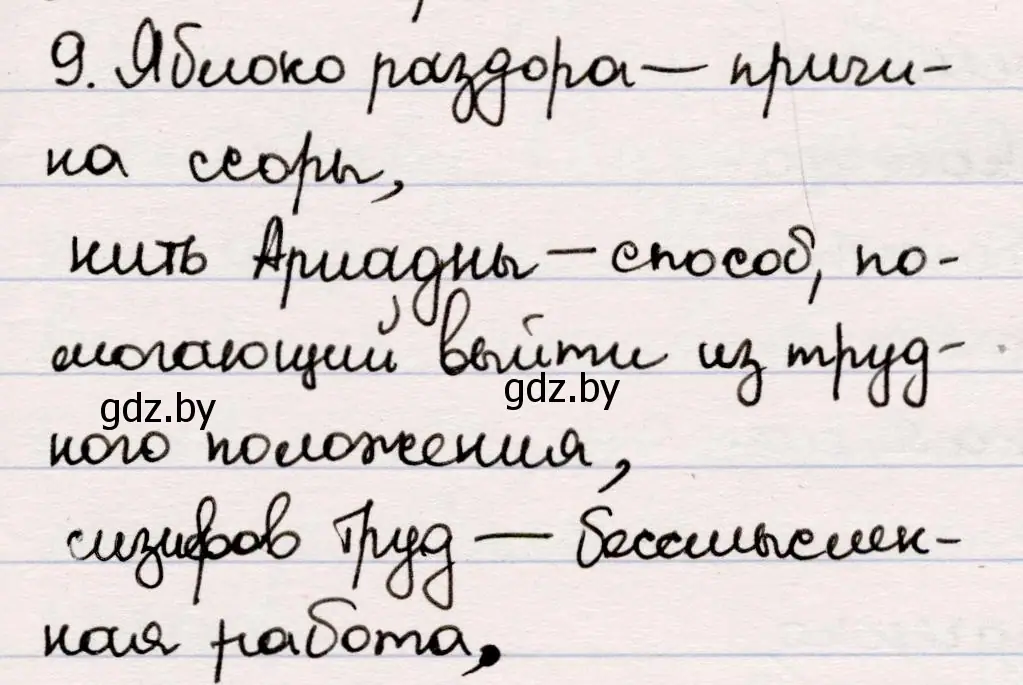 9. Яблоко раздора — причи-
на ссоры,
нить Ариадны — способ, по-
могающий выйти из труд-
gdz.by gdz.by
ного положения,
сизифов труд — бессмыслен-
ная работа,